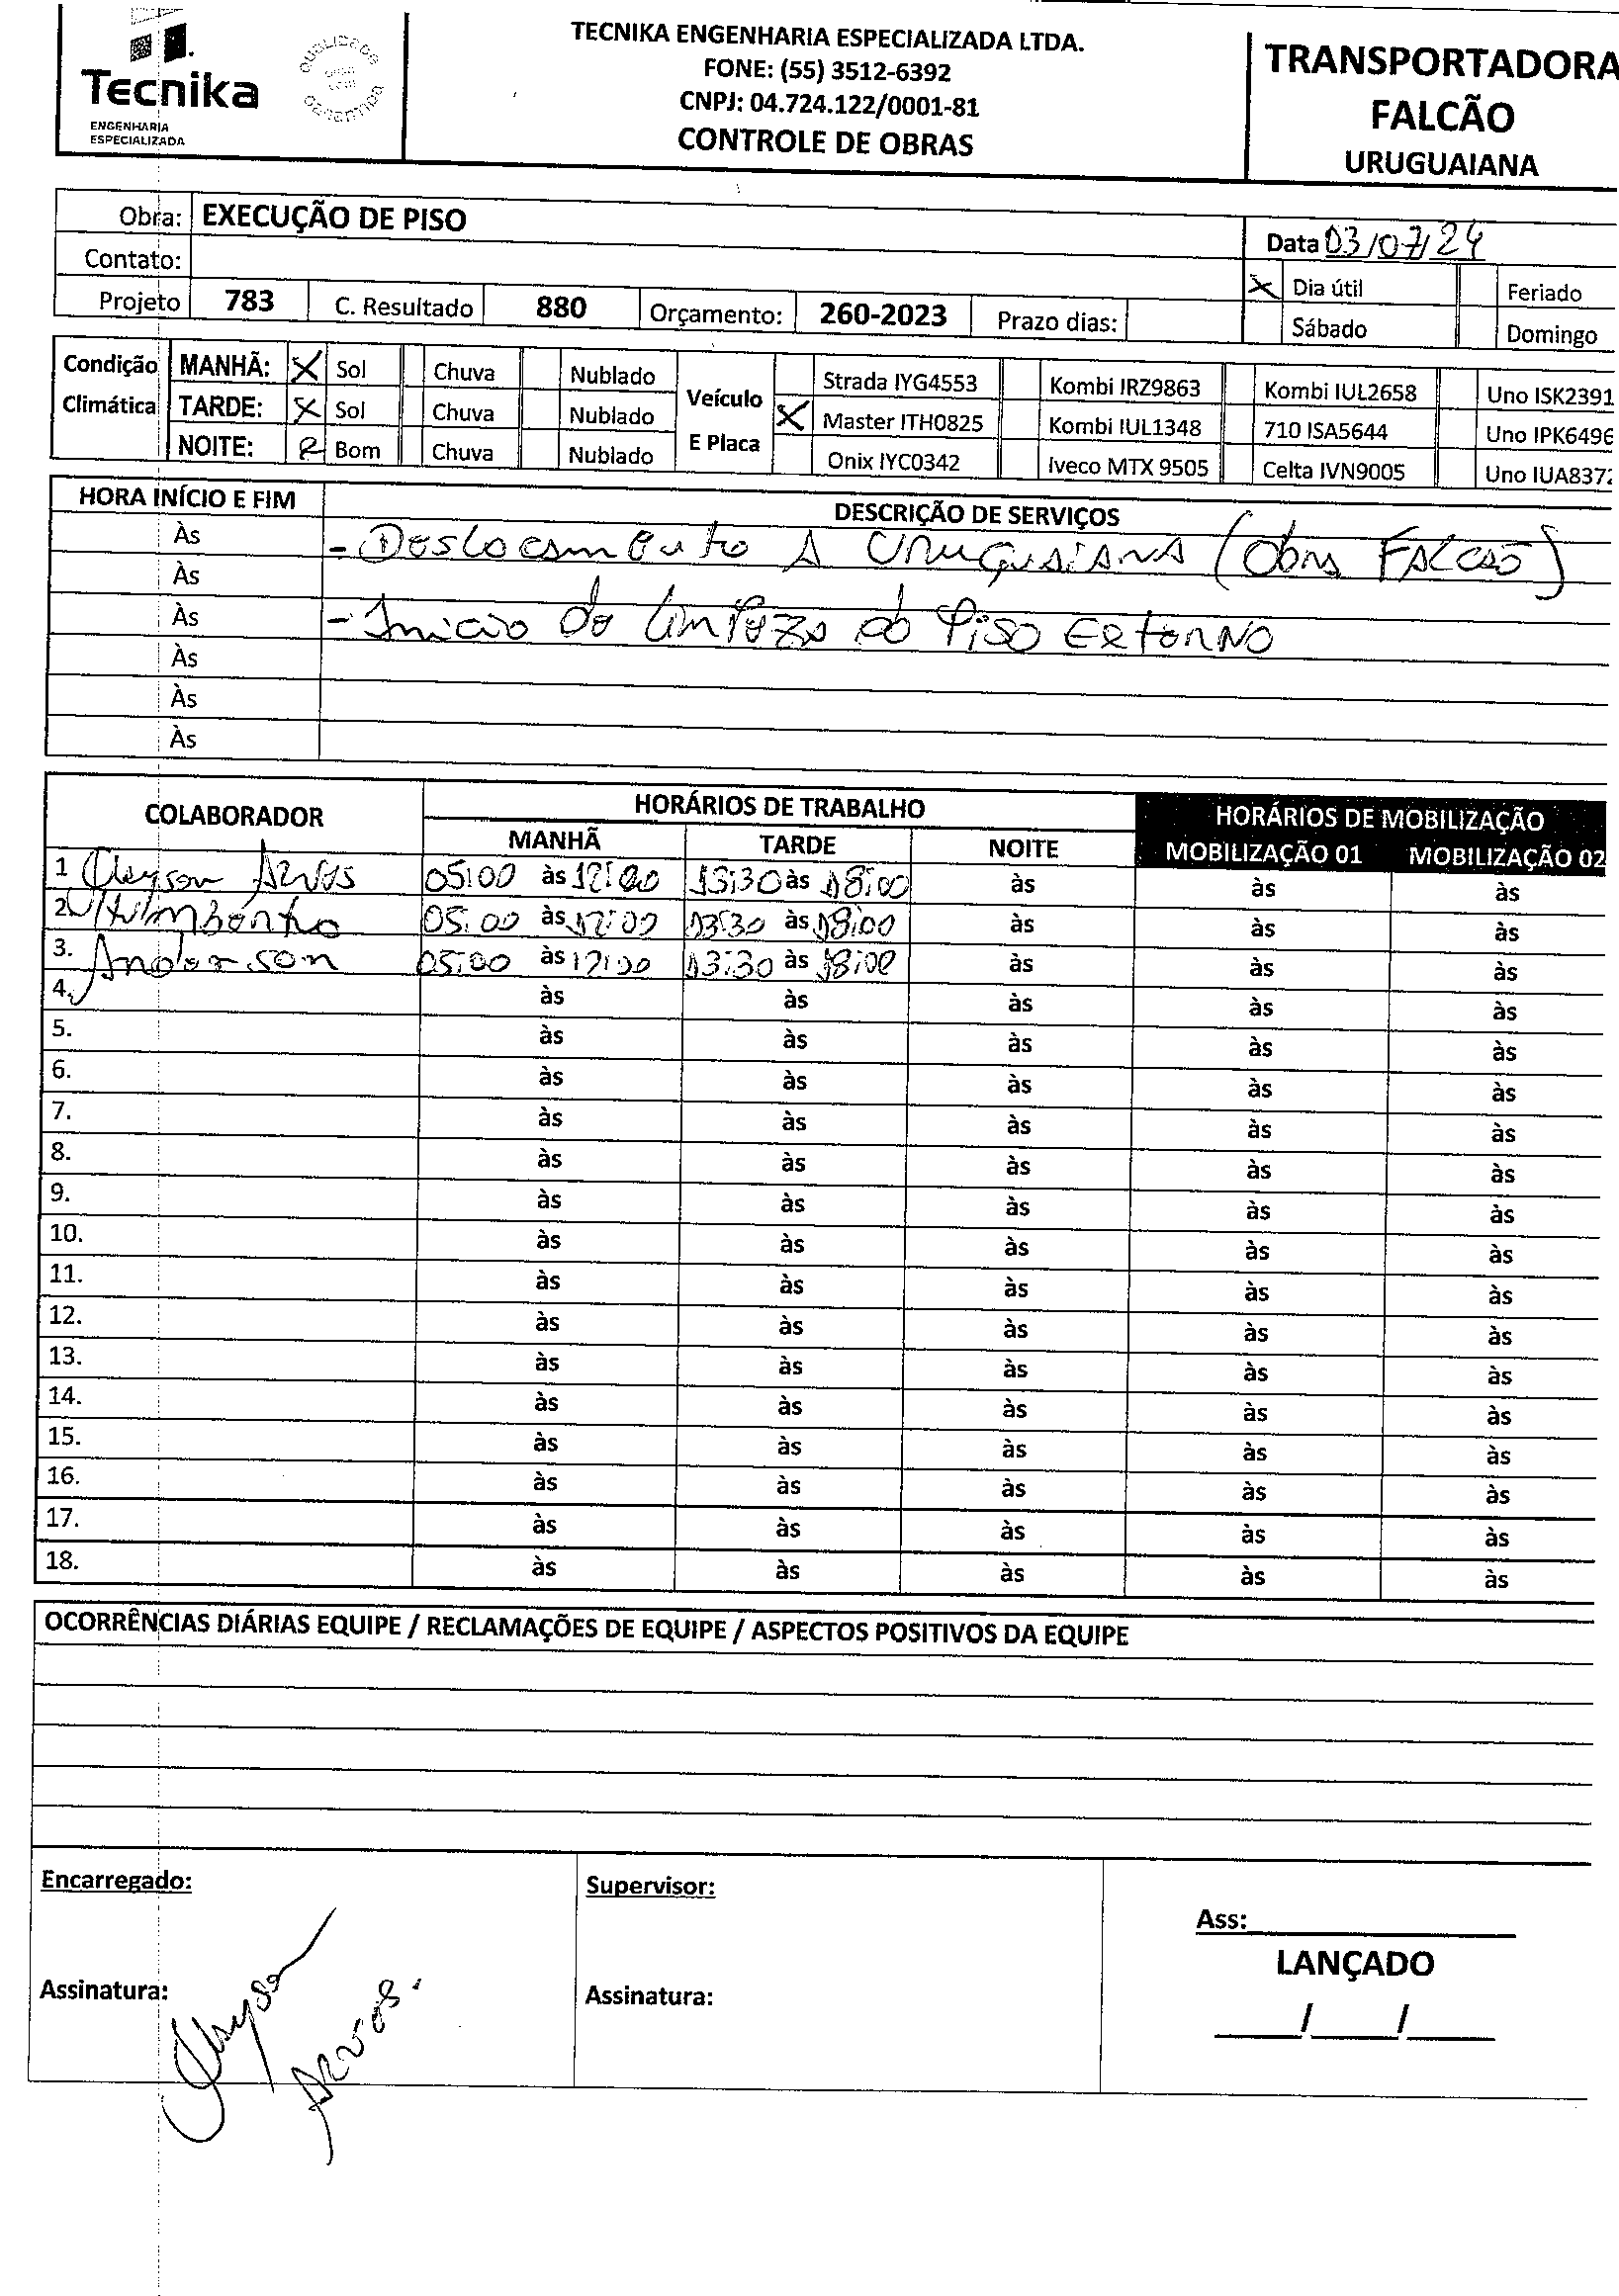 Tecnika
ENGENHARIA
ESPECIALIZADA
TECNIKA ENGENHARIA ESPECIALIZADA LTDA.
FONE: (55) 3512-6392
CNPJ: 04.724.122/0001-81
CONTROLE DE OBRAS
TRANSPORTADORA
FALCÃO
URUGUAIANA
Obra: EXECUÇÃO DE PISO
Data 03/07/24
Contato:
Dia útil Feriado
Projeto 783 C. Resultado 880 Orçamento: 260-2023 Prazo dias:
Sábado Domingo
Condição Climática
MANHÃ: X Sol Chuva Nublado
TARDE: X Sol Chuva Nublado
NOITE: Bom Chuva Nublado
Veículo E Placa
Strada IYG4553 Kombi IRZ9863 Kombi IUL2658 Uno ISK2391
X Master ITH0825 Kombi IUL1348 710 ISA5644 Uno IPK6496
Onix IYC0342 Iveco MTX 9505 Celta IVN9005 Uno IUA837
HORA INÍCIO E FIM DESCRIÇÃO DE SERVIÇOS
Às - Deslocamento A Uruguaiana (Obra Falcão)
Às
Às - Inicio do limpeza do Piso Externo
Às
Às
Às
COLABORADOR HORÁRIOS DE TRABALHO HORÁRIOS DE MOBILIZAÇÃO
MANHÃ TARDE NOITE MOBILIZAÇÃO 01 MOBILIZAÇÃO 02
1 05:00 às 12:00 13:30 às 18:00 às às às
2. 05:00 às 12:00 13:30 às 18:00 às às às
3. Anderson 05:00 às 12:00 13:30 às 18:00 às às às
4. às às às às às
5. às às às às às
6. às às às às às
7. às às às às às
8. às às às às às
9. às às às às às
10. às às às às às
11. às às às às às
12. às às às às às
13. às às às às às
14. às às às às às
15. às às às às às
16. às às às às às
17. às às às às às
18. às às às às às
OCORRÊNCIAS DIÁRIAS EQUIPE / RECLAMAÇÕES DE EQUIPE / ASPECTOS POSITIVOS DA EQUIPE
Encarregado:
Supervisor:
Ass:
LANÇADO
Assinatura:
Assinatura:
___/___/___